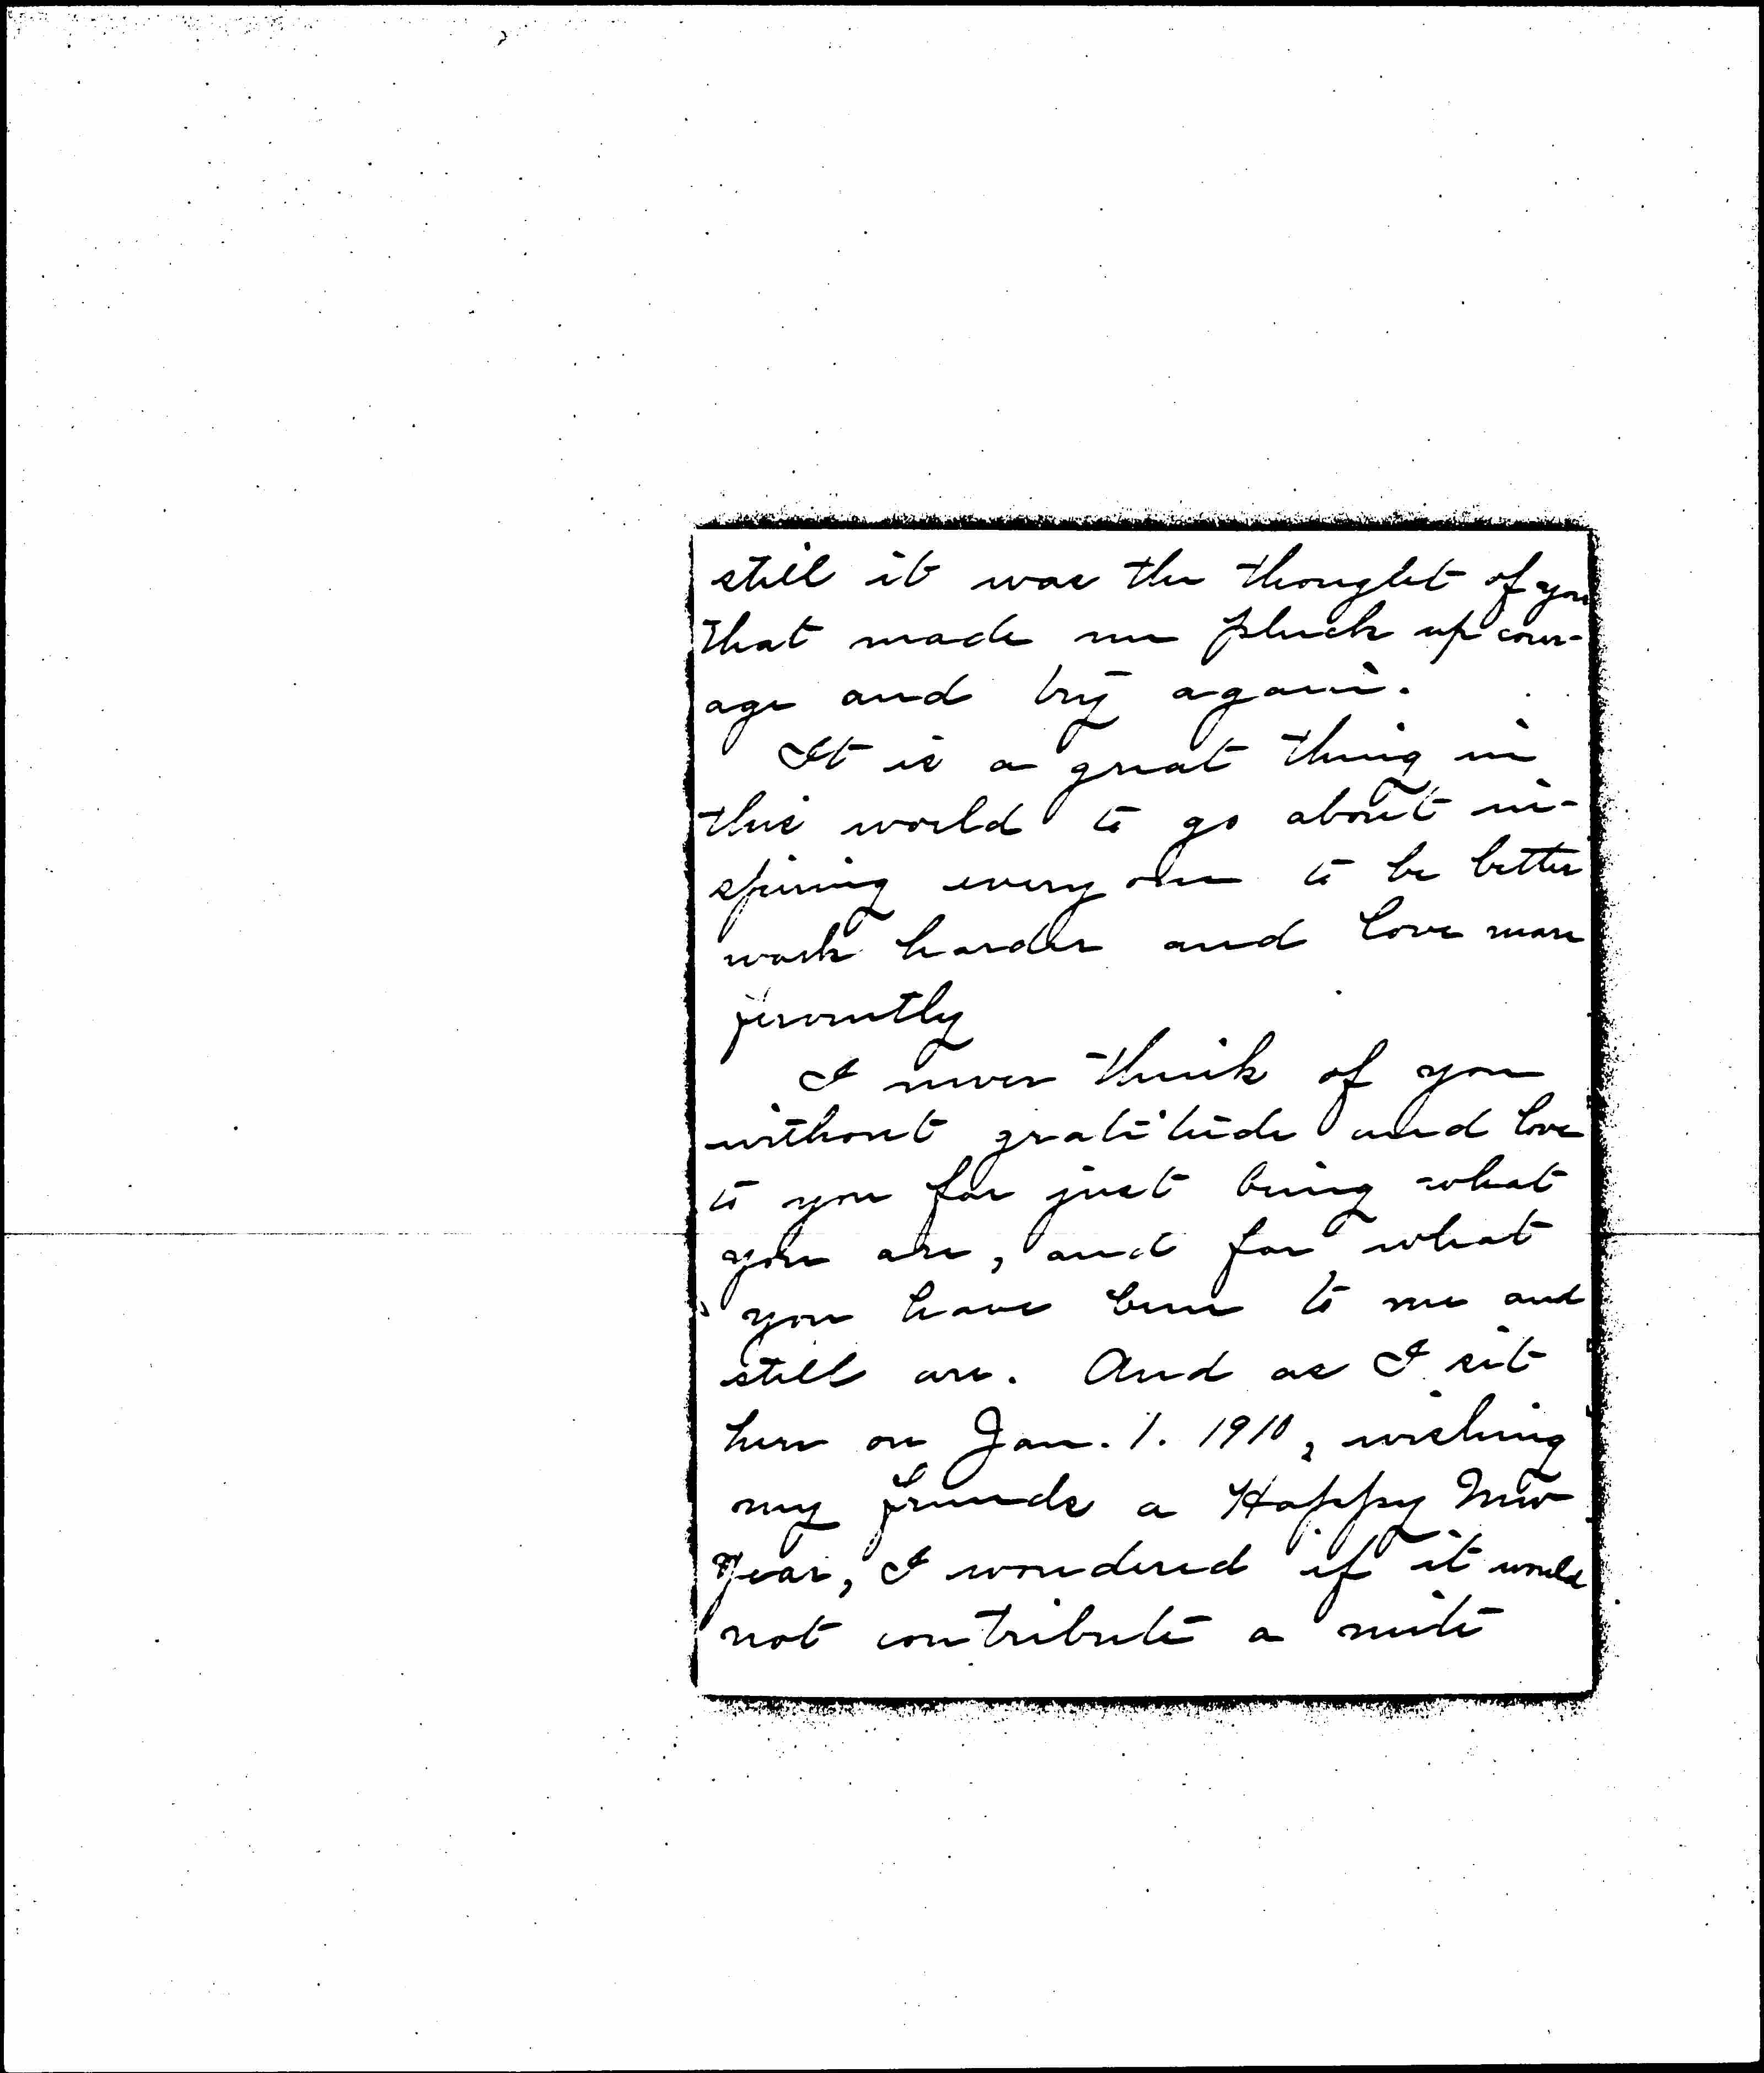 still it was the thought of you
that made me pluck up cour-
age and try again.
It is a great thing in
this world to go about in-
spiring every one to be better
work harder and love more
fervently
I never think of you
without gratitude and love
to you for just being what
you are, and for what
you have been to me and
still are. And as I sit
here on Jan. 1. 1910, wishing
my friends a Happy New
Year, I wondered if it would
not contribute a mite